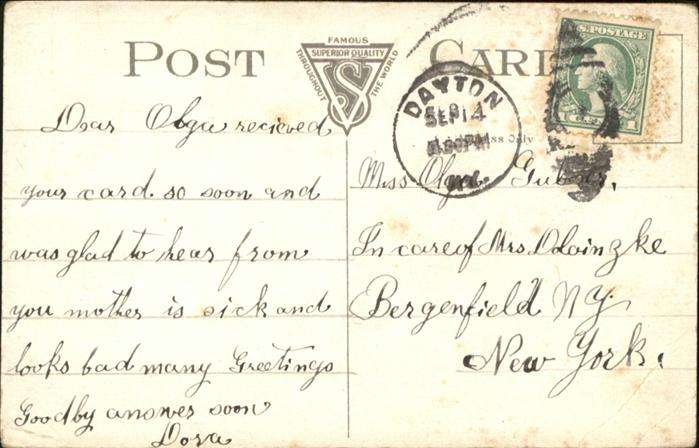 POST CARD
FAMOUS
SUPERIOR QUALITY
THROUGHOUT THE WORLD
S
U.S. POSTAGE
DAYTON
SEP 14
Only
Dear Olga recieved
your card so soon and
was glad to hear from
you mother is sick and
looks bad many Greetings
Goodby answer soon
Dora
Miss Olga
In care of Mrs.
Bergenfield N.Y.
New York.